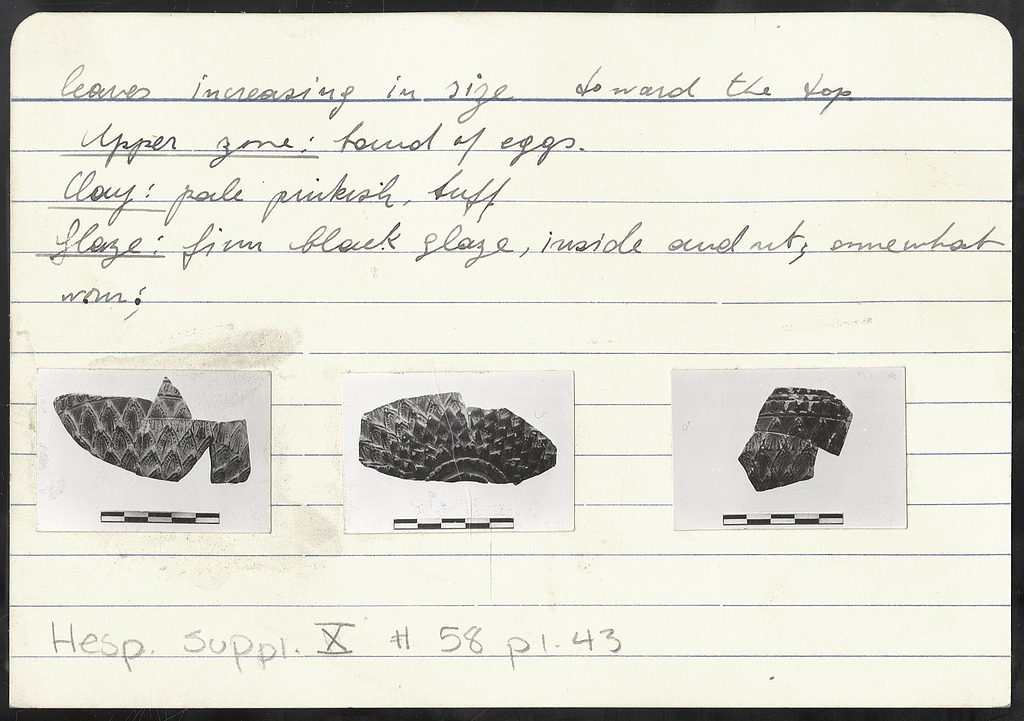 leaves increasing in size toward the top
Upper zone: band of eggs.
Clay: pale pinkish, buff
Glaze: firm black glaze, inside and out; somewhat
worn;
Hesp. Suppl. X # 58 pl. 43